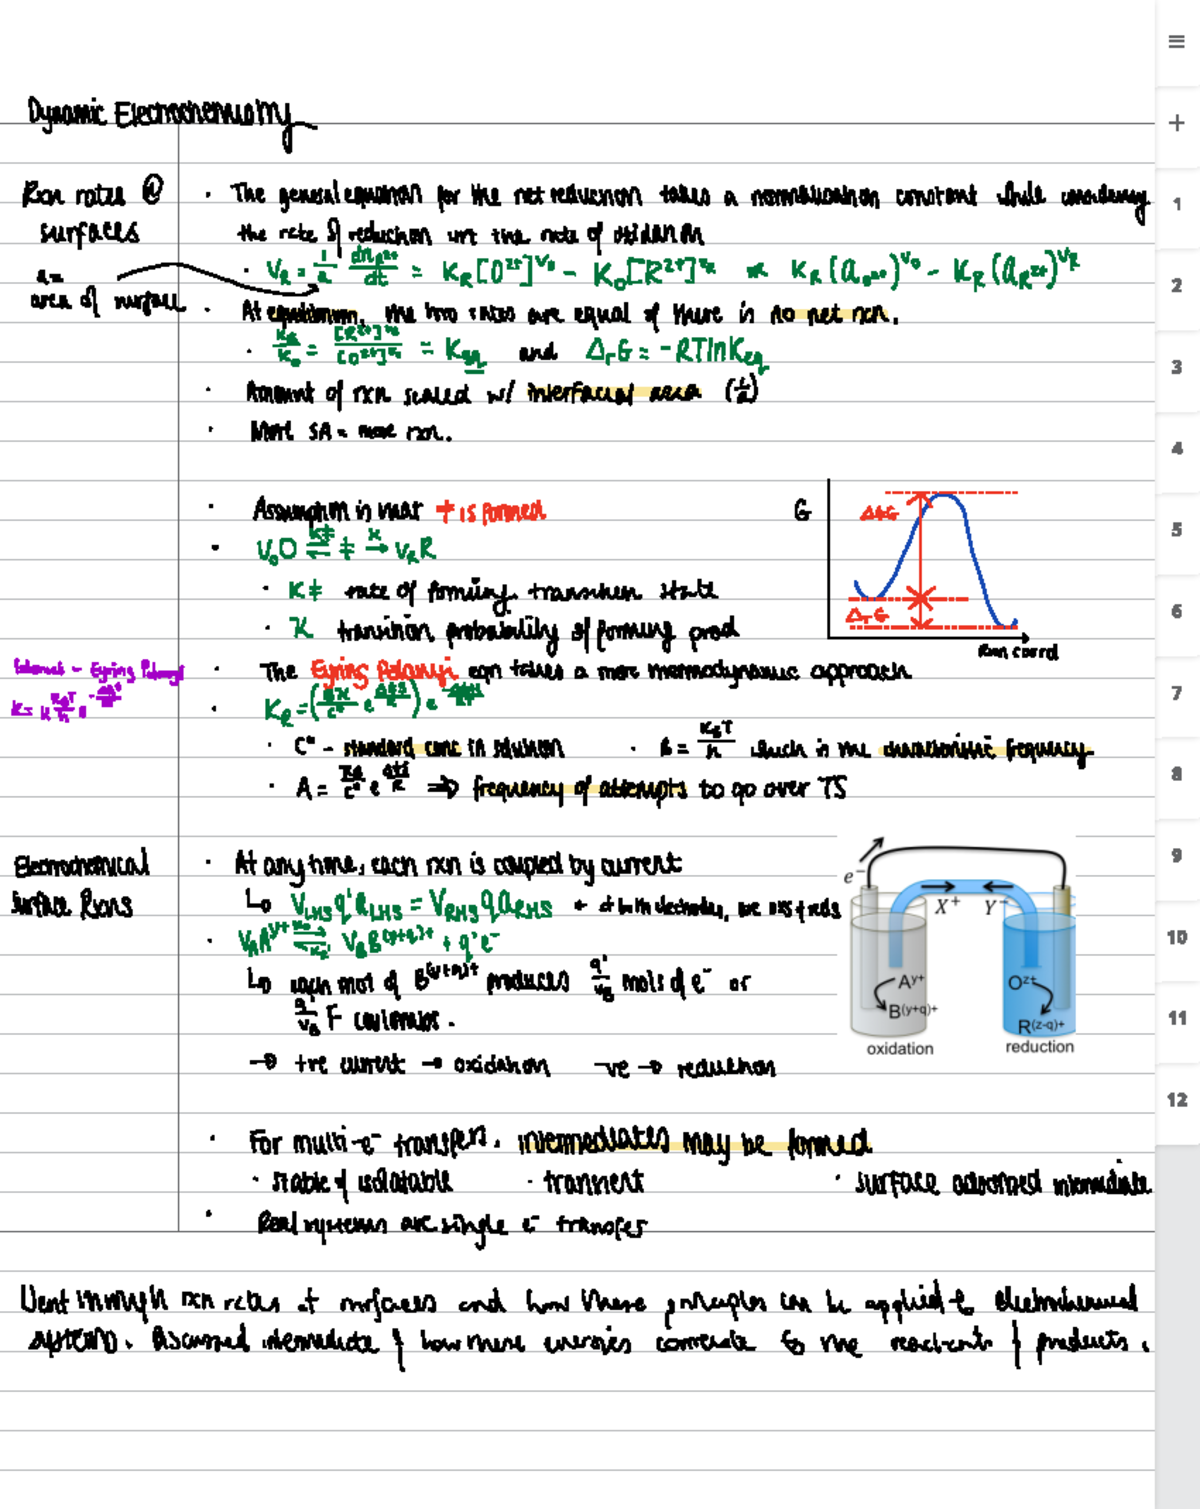 Dynamic Electrochemistry
Rxn rates @ surfaces
· The general equation for the net reduction takes a normalisation constant while considering
the rate of reduction wrt the rate of oxidation
a = area of surface
· V_R = 1/a dn_R^z+/dt = K_R[O^z+]^v_o - K_o[R^z+]^v_R or K_R(a_O^z+)^v_o - K_R(a_R^z+)^v_R
· At equilibrium, the two rates are equal & there is no net rxn.
· K_R/K_o = [R^z+]^v_R/[O^z+]^v_o = K_eq and Δ_rG = -RTlnK_eq
· Amount of rxn scaled w/ interfacial area (1/a)
· More SA = more rxn.
· Assumption is that ‡ is formed
· V_oO ⇌ ‡ → V_RR
K‡
κ
· K‡ rate of forming transition state
· κ transition probability of forming prod
G
Δ‡G
Δ_rG
Rxn coord
· The Eyring Polanyi eqn takes a more thermodynamic approach
Eyring Polanyi
K = κ K_BT/h e
· K_R = (Bκ/C° e^Δ‡S/R) e
· C° - standard conc in solution · B = K_BT/h which is the characteristic frequency
· A = κB/C° e^Δ‡S/R ⇒ frequency of attempts to go over TS
Electrochemical Surface Rxns
· At any time, each rxn is coupled by current
↳ V_LHS q'a_LHS = V_RHS q a_RHS
· V_AA^y+ ⇌ V_BB^(y+q)+ + q'e⁻
↳ each mol of B^(y+q)+ produces q'/v_B mols of e⁻ or
q'/v_B F coulombs.
→ +ve current → oxidation -ve → reduction
e⁻
X+ Y-
A^y+
B^(y+q)+
oxidation
O^z+
R^(z-q)+
reduction
· For multi-e⁻ transfers, intermediates may be formed
· stable & isolatable · transient · surface adsorbed intermediate
· Real systems are single e⁻ transfer
Went through rxn rates at surfaces and how these principles can be applied to electrochemical
systems. Discussed intermediate & how these energies correlate to the reactants & products.
≡
+
1
2
3
4
5
6
7
8
9
10
11
12